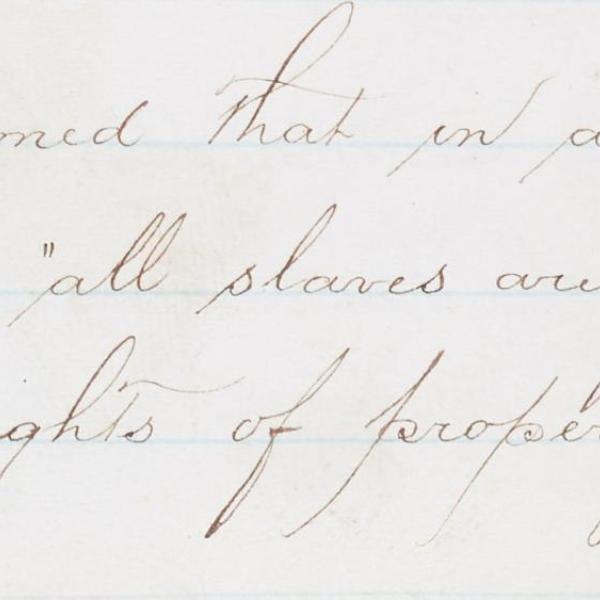 med that in a
"all slaves are
ghts of proper